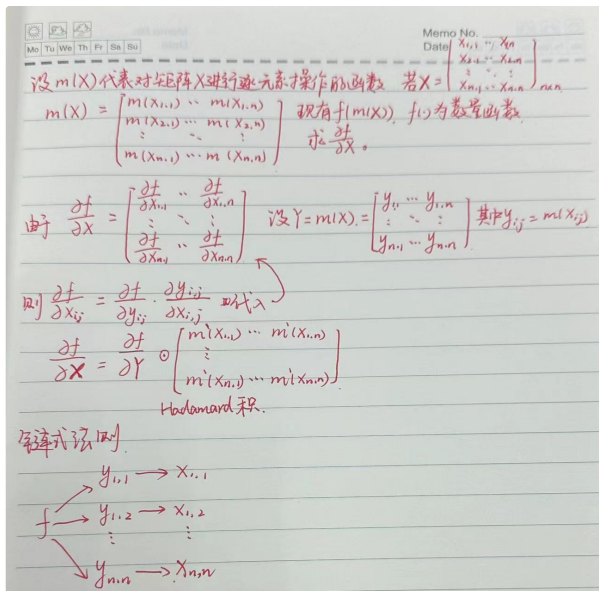 Memo No.
Mo Tu We Th Fr Sa Su
Date
设m(X)代表对矩阵X进行逐元素操作的函数 若X = [x₁,₁ ⋯ x₁,ₙ; x₂,₁ ⋯ x₂,ₙ; ⋮ ⋱ ⋮; xₙ,₁ ⋯ xₙ,ₙ]ₙₓₙ
m(X) = [m(x₁,₁) ⋯ m(x₁,ₙ); m(x₂,₁) ⋯ m(x₂,ₙ); ⋮ ⋱ ⋮; m(xₙ,₁) ⋯ m(xₙ,ₙ)] 现有f(m(X)), f(·)为数量函数
求 ∂f/∂X。
由于 ∂f/∂X = [∂f/∂x₁,₁ ⋯ ∂f/∂x₁,ₙ; ⋮ ⋱ ⋮; ∂f/∂xₙ,₁ ⋯ ∂f/∂xₙ,ₙ] 设Y=m(X) = [y₁,₁ ⋯ y₁,ₙ; ⋮ ⋱ ⋮; yₙ,₁ ⋯ yₙ,ₙ] 其中yᵢⱼ = m(xᵢⱼ)
则 ∂f/∂xᵢⱼ = ∂f/∂yᵢⱼ · ∂yᵢ,ⱼ/∂xᵢ,ⱼ 代入
∂f/∂X = ∂f/∂Y ⊙ [m'(x₁,₁) ⋯ m'(x₁,ₙ); ⋮; m'(xₙ,₁) ⋯ m'(xₙ,ₙ)]
Hadamard积.
链式法则
y₁,₁ → x₁,₁
f → y₁,₂ → x₁,₂
⋮ ⋮
yₙ,ₙ → xₙ,ₙ